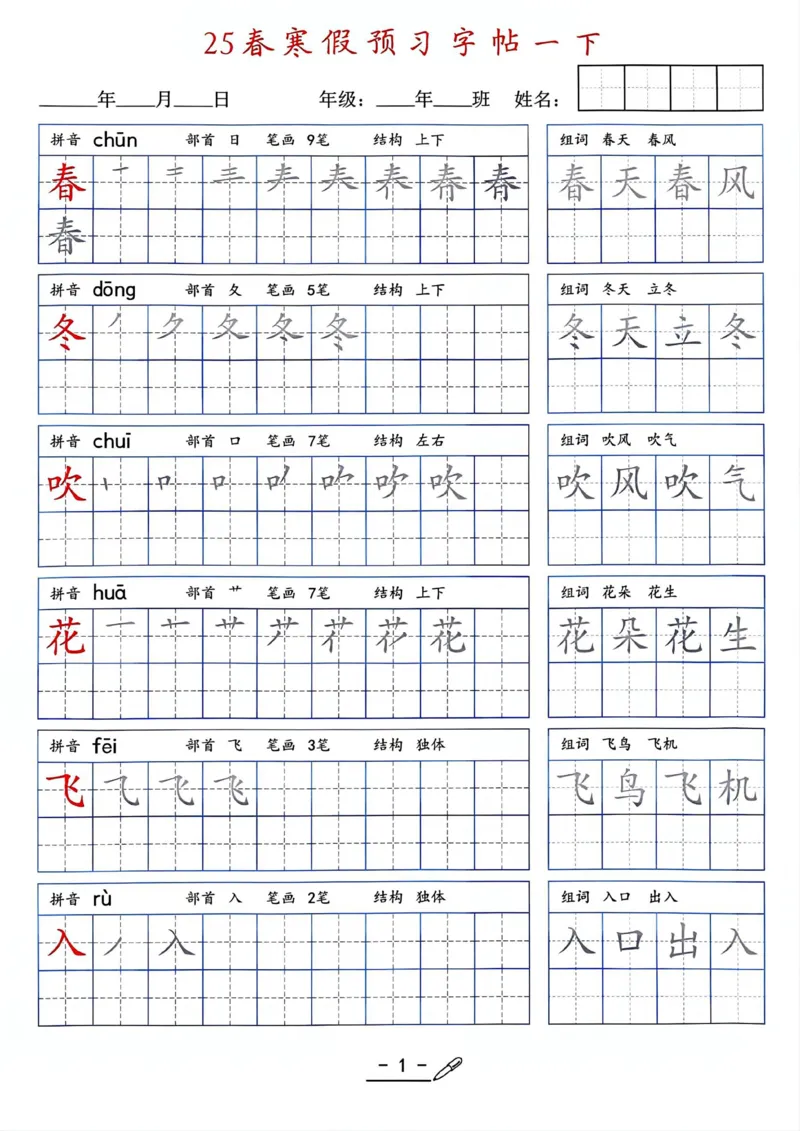 25春寒假预习字帖一下
______年____月____日 年级：____年____班 姓名：
拼音 chūn 部首 日 笔画 9笔 结构 上下
组词 春天 春风
春 春 春
春 天 春 风
春
拼音 dōng 部首 夂 笔画 5笔 结构 上下
组词 冬天 立冬
冬 丿 夂 冬 冬
冬 天 立 冬
拼音 chuī 部首 口 笔画 7笔 结构 左右
组词 吹风 吹气
吹 丨 口 吹
吹 风 吹 气
拼音 huā 部首 艹 笔画 7笔 结构 上下
组词 花朵 花生
花 一 艹 花
花 朵 花 生
拼音 fēi 部首 飞 笔画 3笔 结构 独体
组词 飞鸟 飞机
飞 飞
飞 鸟 飞 机
拼音 rù 部首 入 笔画 2笔 结构 独体
组词 入口 出入
入 丿 入
入 口 出 入
- 1 -